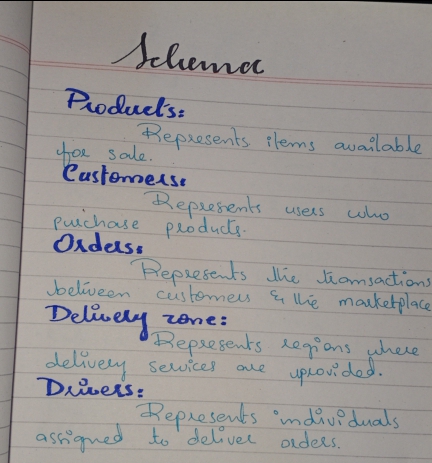 Schema
Products:
Represents items available
for sale.
Customers:
Represents users who
purchase products.
Orders:
Represents the transactions
between customers & the marketplace
Delivery zone:
Represents regions where
delivery services are provided.
Drivers:
Represents individuals
assigned to deliver orders.